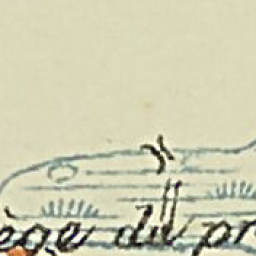 ège du pr